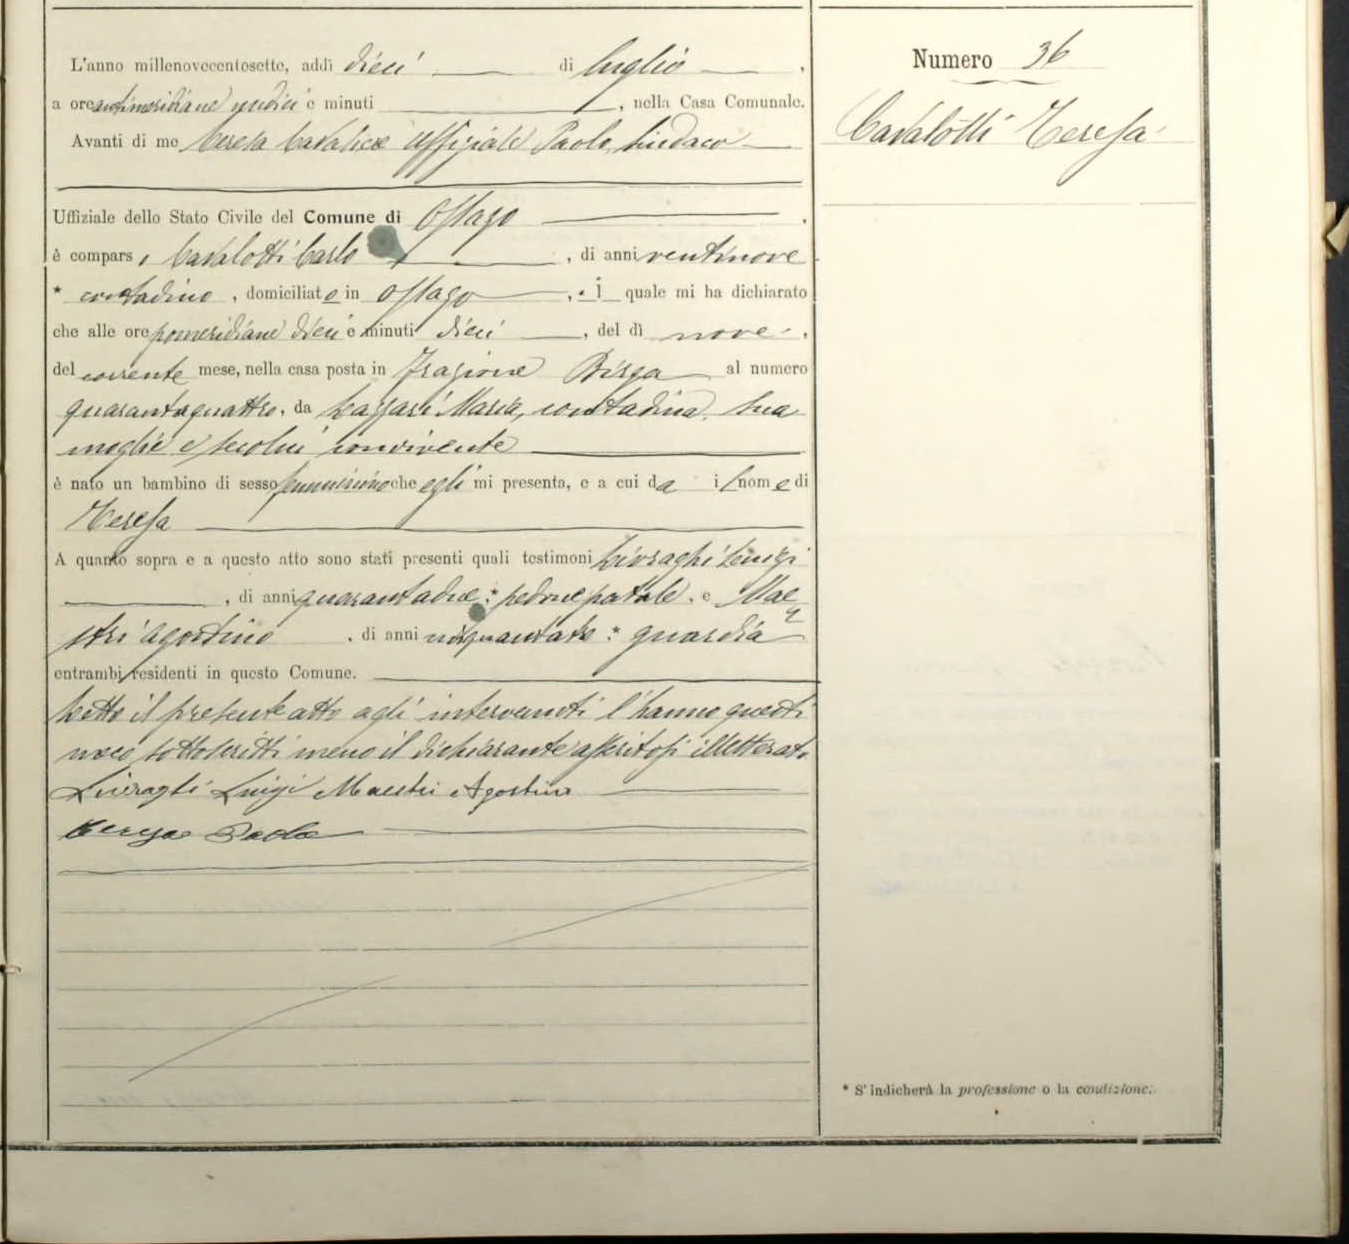 L'anno millenovecentosette, addì dieci di luglio,
a ore antimeridiane undici e minuti, nella Casa Comunale.
Avanti di me Ceresa Cavaliere Uffiziale Paolo, Sindaco
Uffiziale dello Stato Civile del Comune di Ossago.
è compars o Cavalotti Carlo, di anni ventinove
* contadino, domiciliato in Ossago, il quale mi ha dichiarato
che alle ore pomeridiane dieci e minuti dieci, del dì nove,
del corrente mese, nella casa posta in frazione Birga al numero
quarantaquattro, da Maria, contadina, sua
moglie e secolui convivente
è nato un bambino di sesso femminino che egli mi presenta, e a cui da il nome di
Teresa
A quanto sopra e a questo atto sono stati presenti quali testimoni Livraghi Luigi
, di anni quarantadue * pedone postale, e Mae
stri Agostino, di anni * guardia
entrambi residenti in questo Comune.
Letto il presente atto agli intervenuti l'hanno questi
meco sottoscritti meno il dichiarante asseritosi illetterato
Livraghi Luigi Maestri Agostino
Ceresa Paolo
Numero 36
Cavalotti Teresa
* S'indicherà la professione o la condizione.